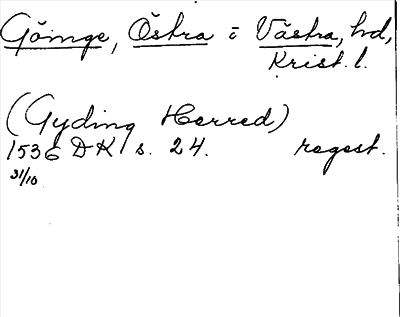 Göinge, Östra o Västra, hd,
Krist. l.
(Gyding Herred)
1536 DK s. 24. regest.
31/10